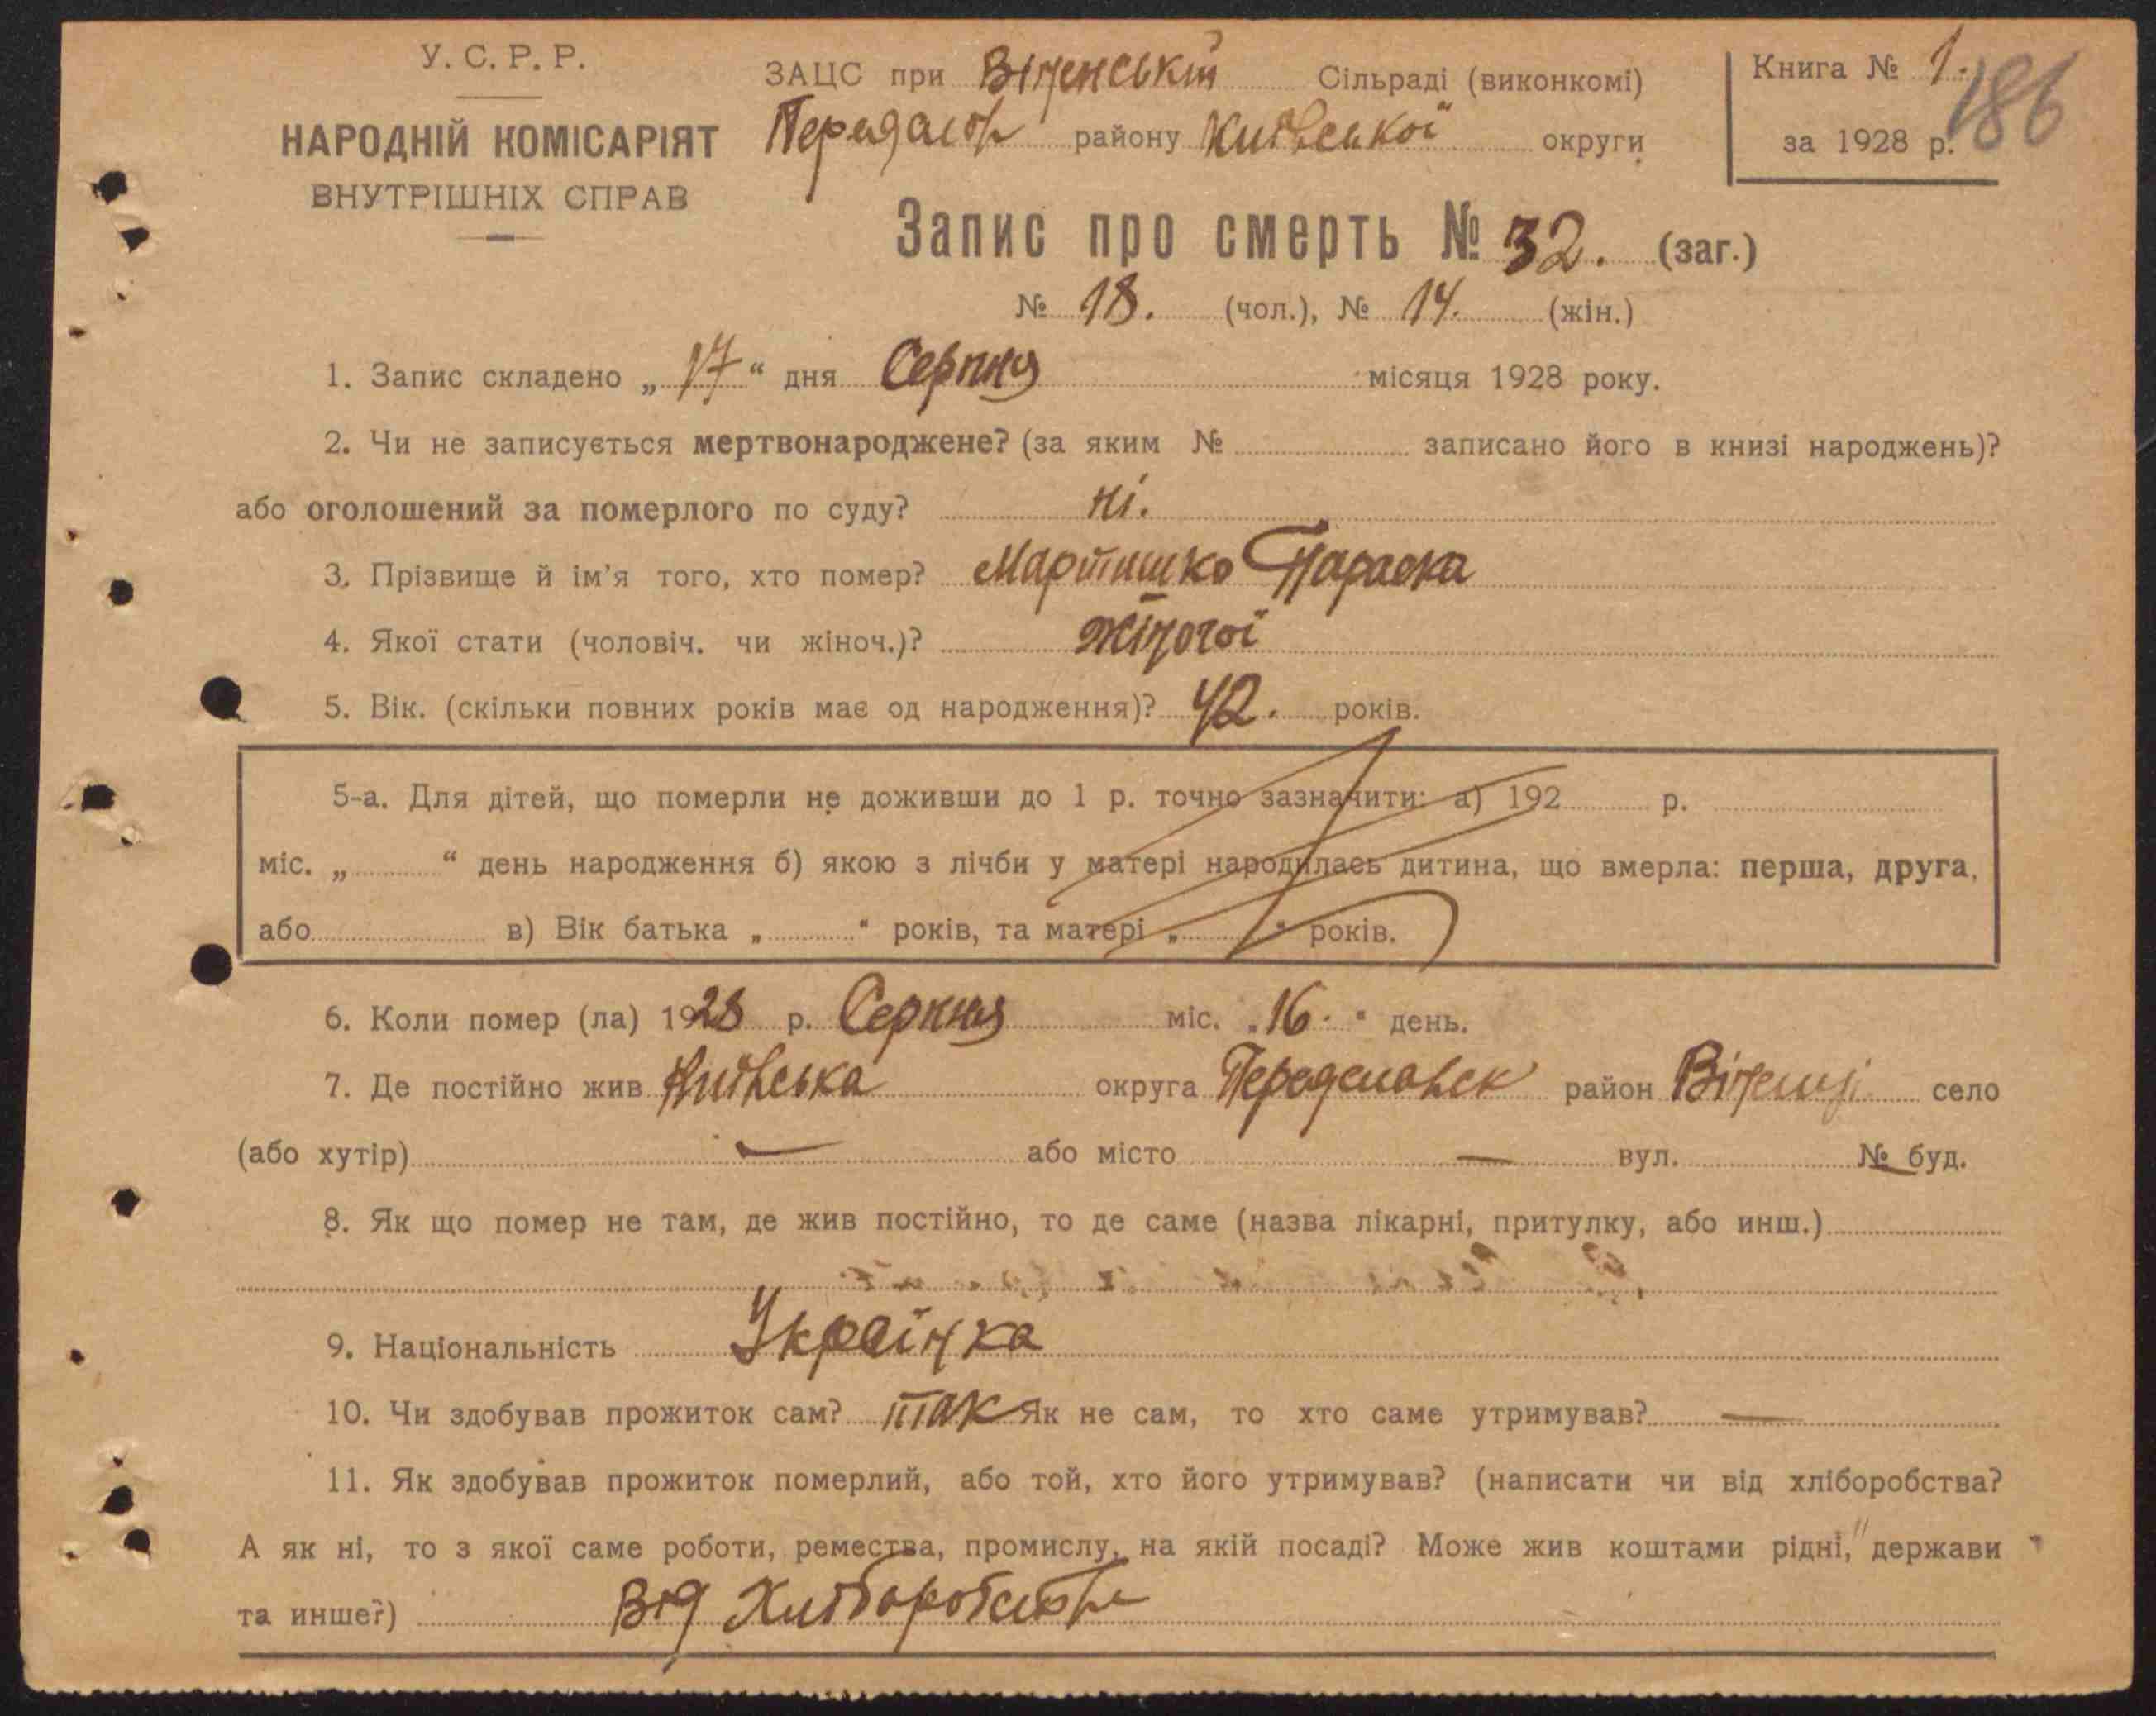 У. С. Р. Р.
НАРОДНІЙ КОМІСАРІЯТ
ВНУТРІШНІХ СПРАВ
ЗАЦС при Віненській Сільраді (виконкомі)
району Київської округи
Книга № 1.
186
за 1928 р.
Запис про смерть № 32. (заг.)
№ 18. (чол.), № 14. (жін.)
1. Запис складено „ 17 “ дня Серпня місяця 1928 року.
2. Чи не записується мертвонароджене? (за яким № записано його в книзі народжень)?
або оголошений за померлого по суду? ні.
3. Прізвище й ім'я того, хто помер? Мартишко Параска
4. Якої стати (чоловіч. чи жіноч.)? жіночої
5. Вік. (скільки повних років має од народження)? 42. років.
5-а. Для дітей, що померли не доживши до 1 р. точно зазначити: а) 192 р.
міс. „ “ день народження б) якою з лічби у матері народилась дитина, що вмерла: перша, друга,
або в) Вік батька „ “ років, та матері „ “ років.
6. Коли помер (ла) 1928 р. Серпня міс. „ 16. “ день.
7. Де постійно жив Київська округа район село
(або хутір) — або місто — вул. № буд.
8. Як що помер не там, де жив постійно, то де саме (назва лікарні, притулку, або инш.)
9. Національність Українка
10. Чи здобував прожиток сам? так Як не сам, то хто саме утримував? —
11. Як здобував прожиток померлий, або той, хто його утримував? (написати чи від хліборобства?
А як ні, то з якої саме роботи, ремества, промислу, на якій посаді? Може жив коштами рідні, держави
та инше?) Від Хліборобства